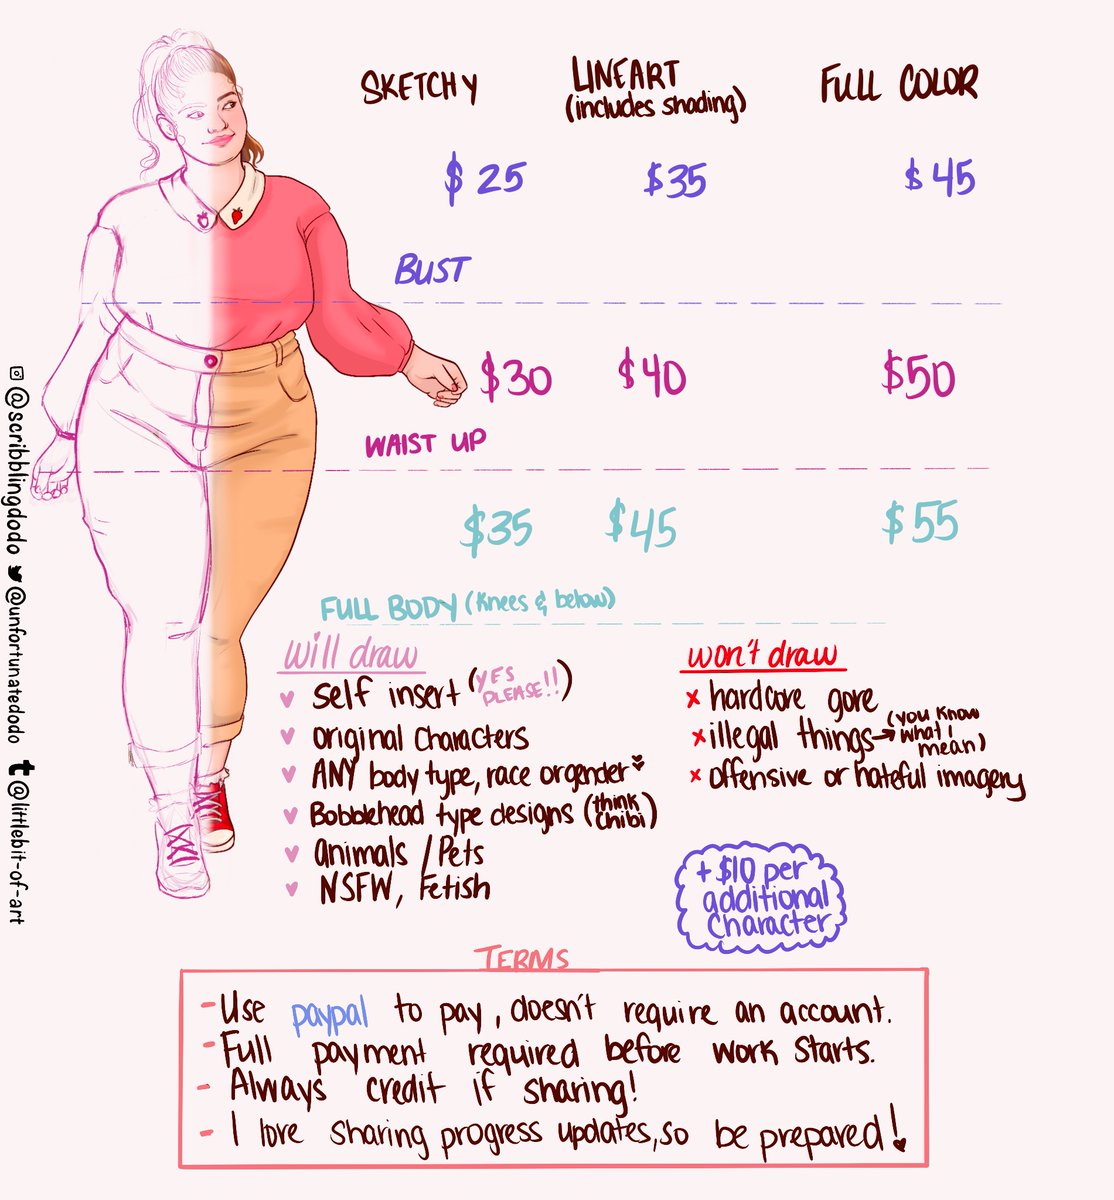 SKETCHY
LINEART
(includes shading)
FULL COLOR
$25
$35
$45
BUST
$30
$40
$50
WAIST UP
$35
$45
$55
FULL BODY (Knees & below)
will draw
self insert (YES PLEASE!!)
original characters
ANY body type, race or gender
Bobblehead type designs (think chibi)
animals / Pets
NSFW, Fetish
won't draw
x hardcore gore
x illegal things → (you know what i mean)
x offensive or hateful imagery
+ $10 per
additional
character
TERMS
- Use paypal to pay, doesn't require an account.
- Full payment required before work starts.
- Always credit if sharing!
- I love sharing progress updates, so be prepared!
@scribblingdodo @unfortunatedodo t @littlebit-of-art